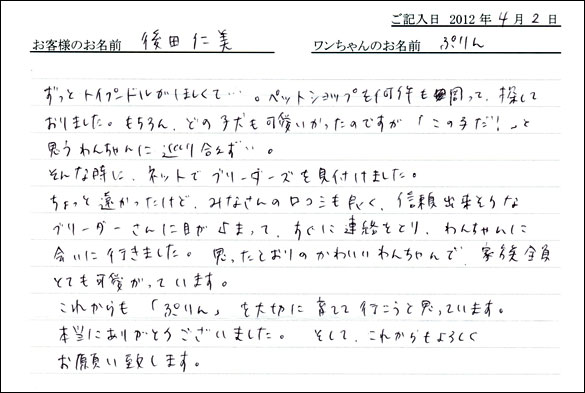 ご記入日 2012年4月2日
お客様のお名前 後田仁美 ワンちゃんのお名前 ぷりん
ずっとトイプードルがほしくて…。ペットショップを何件も周って、探して
おりました。もちろん、どの子犬も可愛いかったのですが「この子だ!」と
思うわんちゃんに巡り合えず…。
そんな時に、ネットでブリーダーズを見付けました。
ちょっと遠かったけど、みなさんの口コミも良く、信頼出来そうな
ブリーダーさんに目が止まって、すぐに連絡をとり、わんちゃんに
会いに行きました。思ったとおりのかわいいわんちゃんで、家族全員
とても可愛がっています。
これからも「ぷりん」を大切に育てて行こうと思っています。
本当にありがとうございました。そして、これからもよろしく
お願い致します。